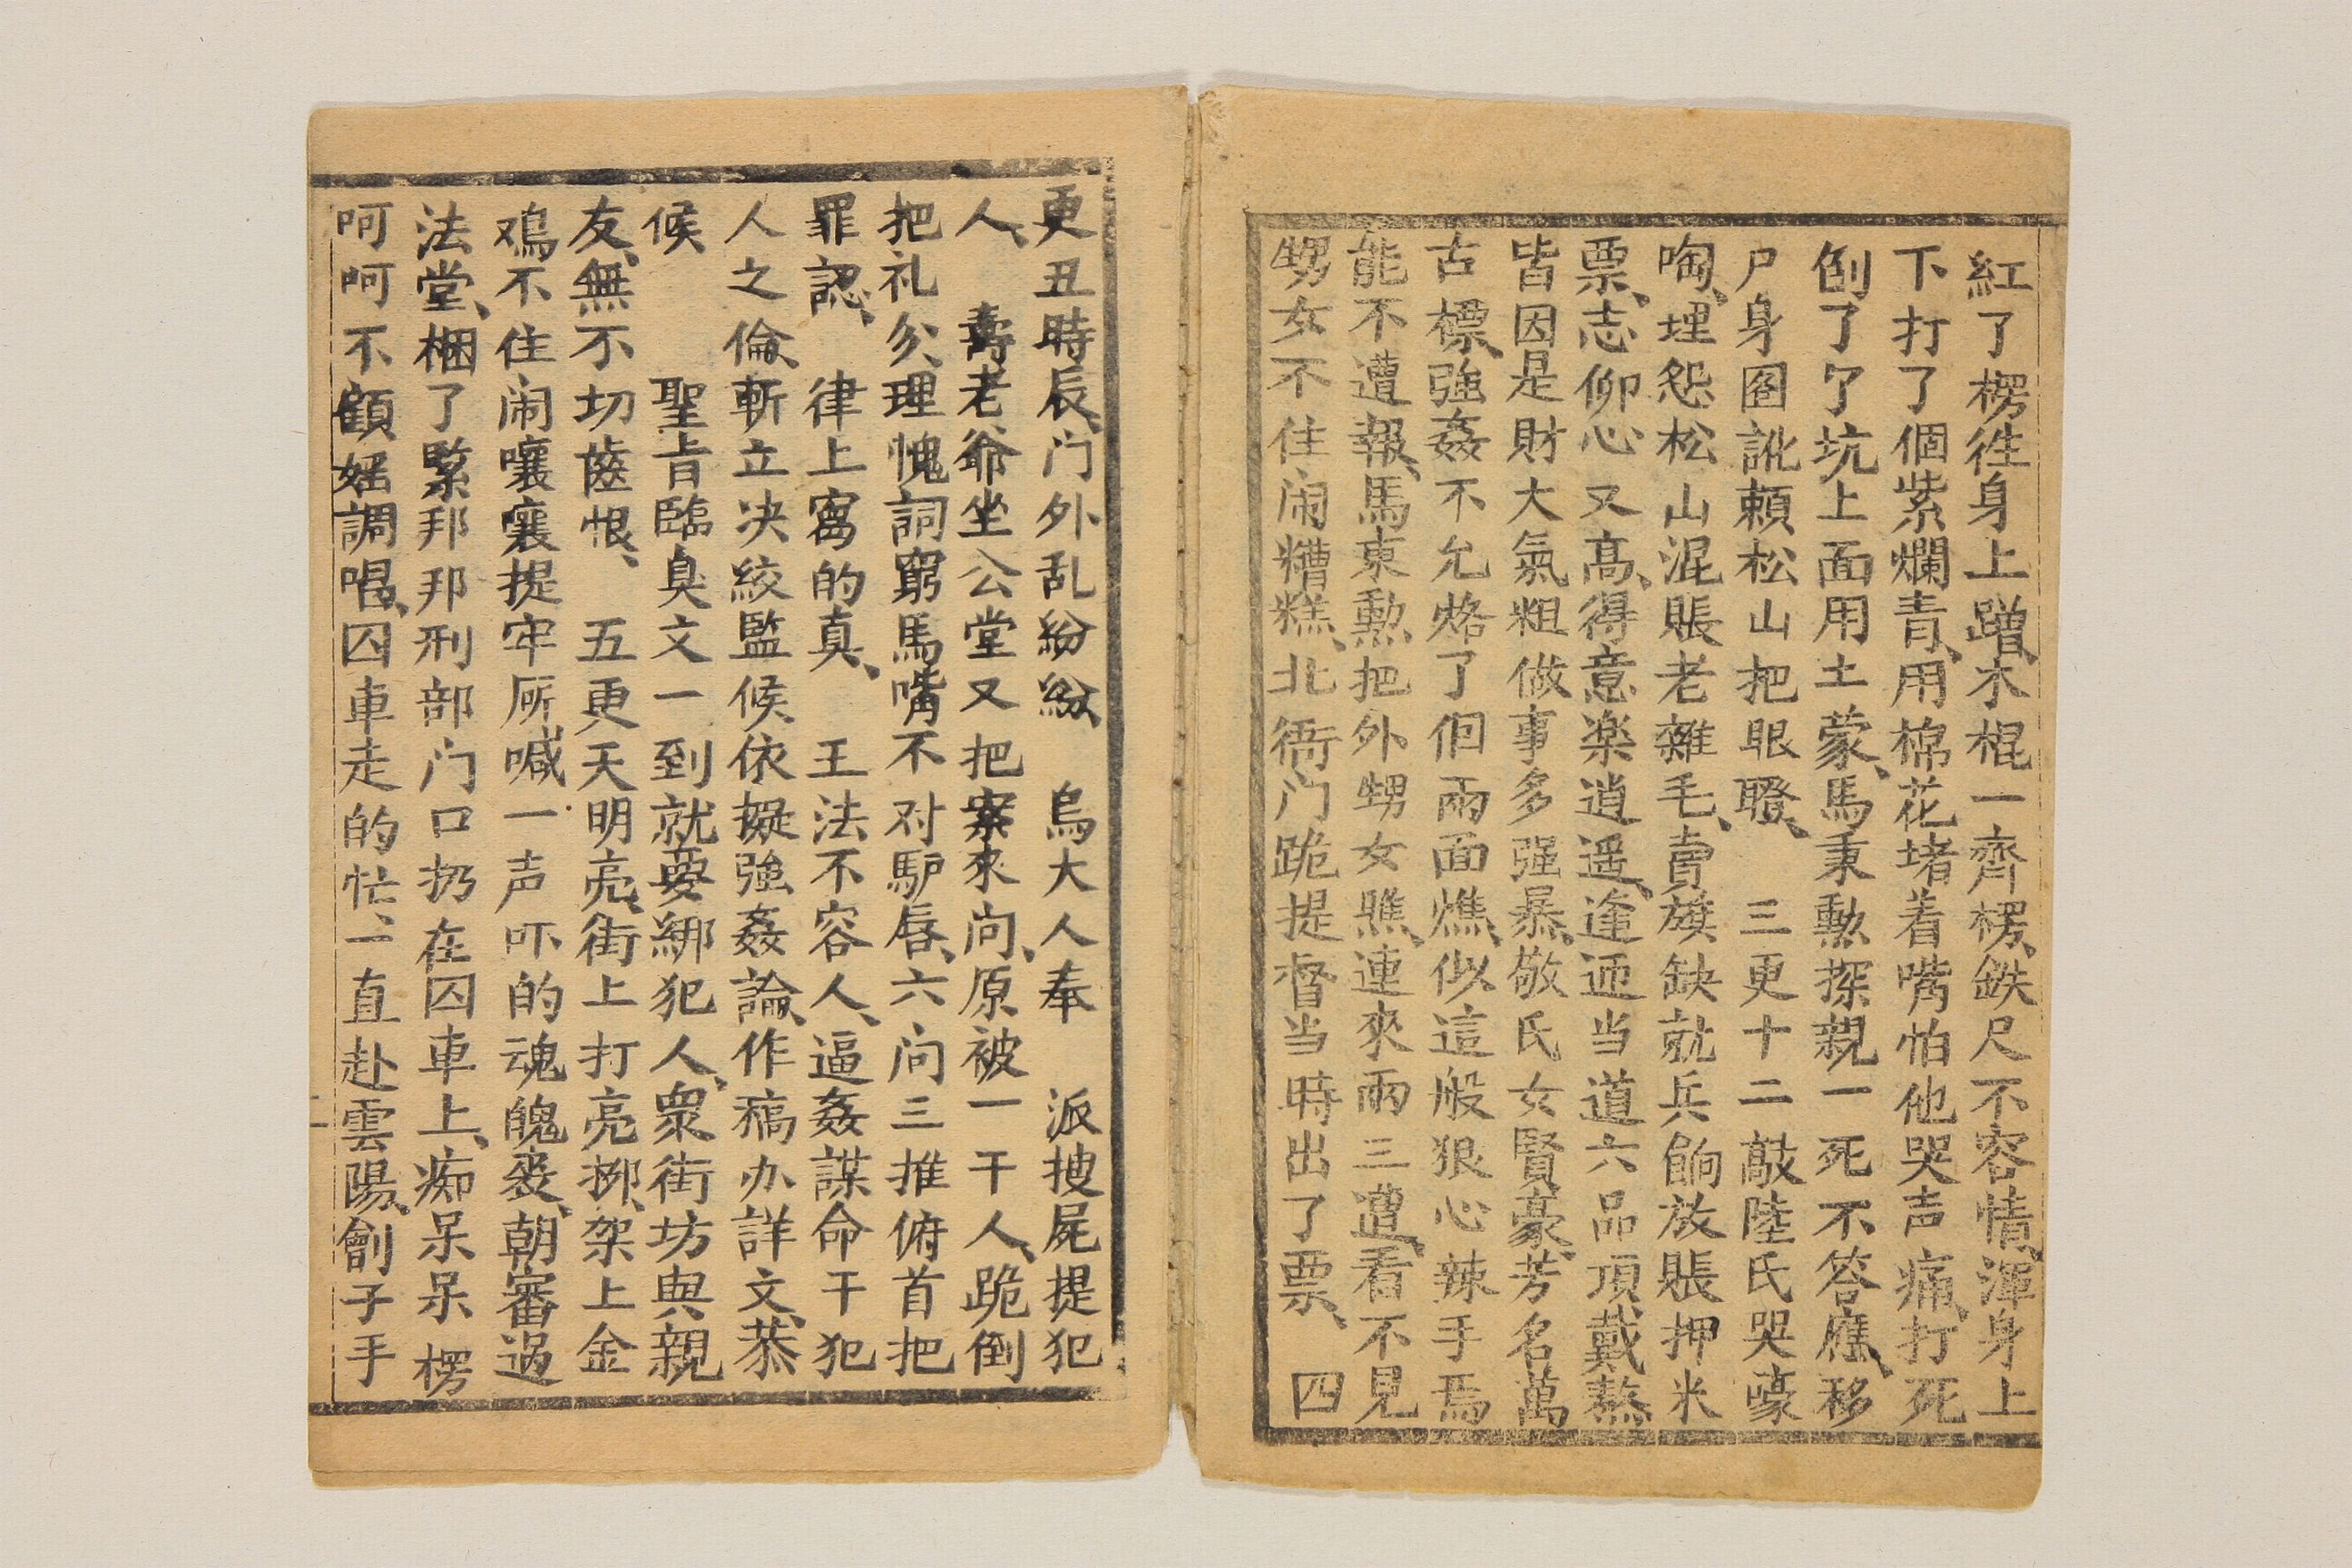 紅了楞徃身上蹭、木棍一齊楞、鉄尺不容情、渾身上
下打了個紫爛青、用棉花堵着嘴怕他哭声痛、打死
刨了个坑上面用土蒙、馬秉勲探親一死不答應、移
尸身囵訛頼松山把眼瞪、　三更十二敲陸氏哭嚎
啕、埋怨松山混賬老雜毛、賣旗缺就兵餉放賬押米
票、志仰心又髙、得意楽逍遥、逢迊当道六品頂戴熬
皆因是財大氣粗做事多强暴、敬氏女賢豪、芳名萬
古標、強姦不允烙了個兩面燋、似這般狠心辣手焉
能不遭報、馬東勲把外甥女瞧、連來兩三遭、看不見
甥女不住闹糟糕、北衙门跪提督当時出了票、　四
更丑時辰、门外乱紛紛、　烏大人奉　派搜屍提犯
人、　壽老爺坐公堂又把案來问、原被一干人、跪倒
把礼分、理愧詞窮馬嘴不对馿唇、六问三推俯首把
罪認、　律上寫的真、　王法不容人、逼姦謀命干犯
人之倫、斬立决絞監候依擬強姦論、作稿办詳文、恭
候　　聖旨臨臭文一到就要綁犯人、衆街坊與親
友、無不切齒恨、　五更天明亮、街上打亮梆、架上金
鳮不住闹嚷嚷提牢厮喊一声吓的魂魄丧、朝審過
法堂、梱了緊邦邦刑部门口扔在囚車上、痴呆呆楞
呵呵不顧妞調唱、囚車走的忙、一直赴雲陽、劊子手